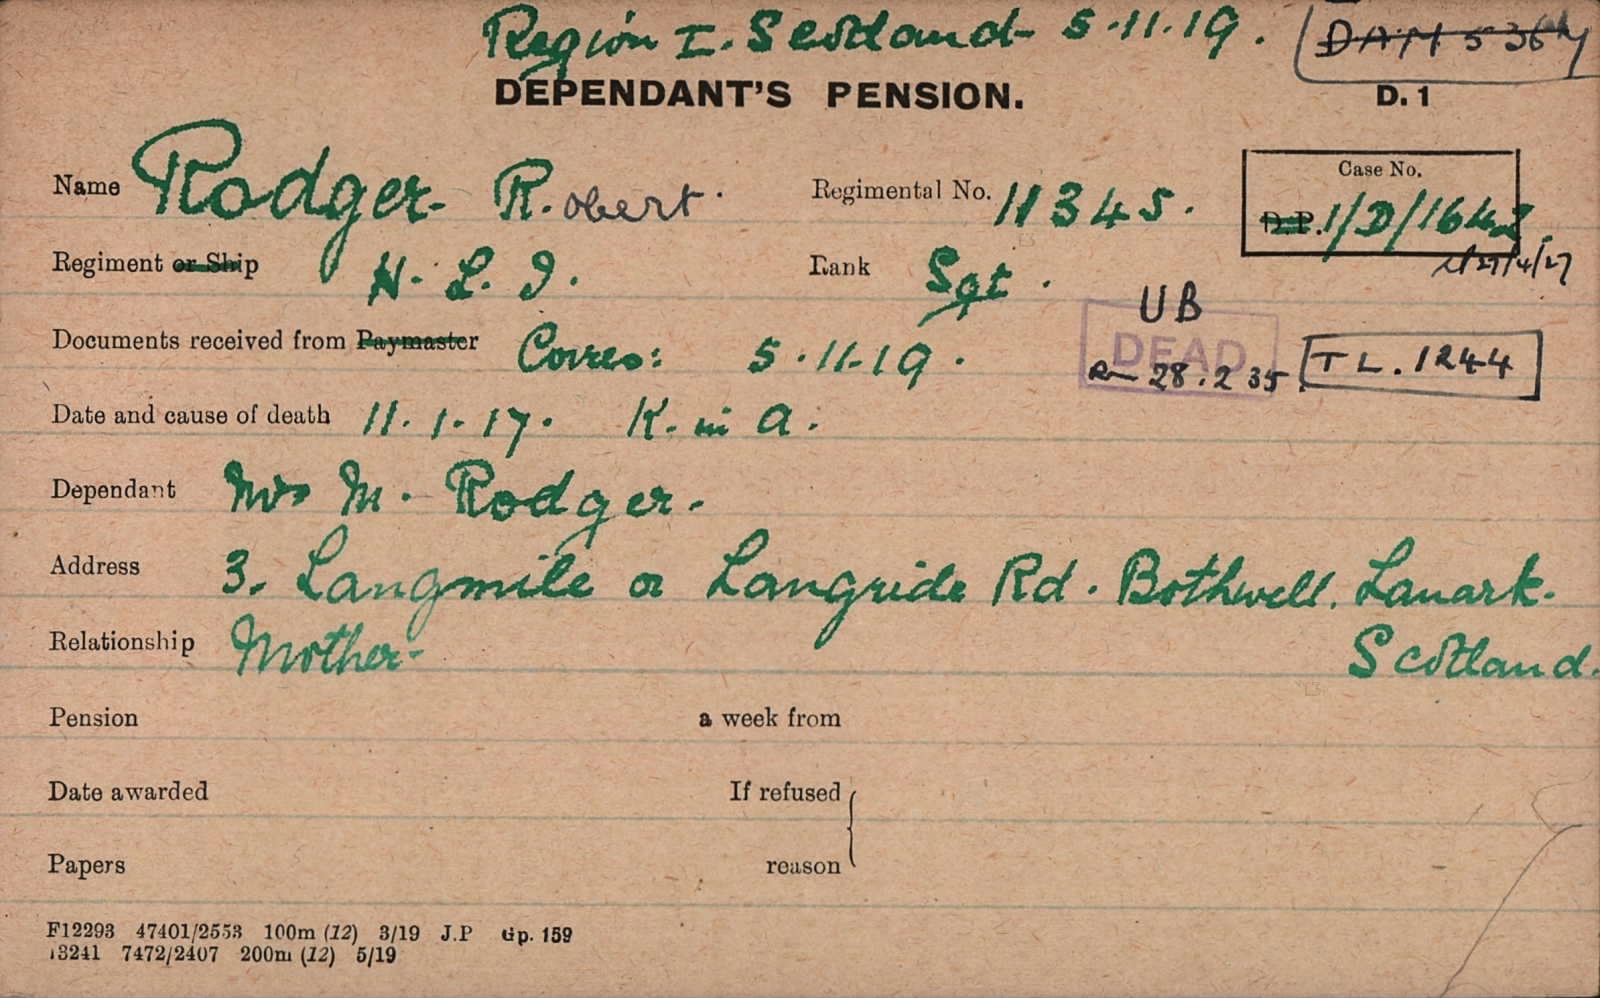 Region I. Scotland 5.11.19.
DAM 536
DEPENDANT'S PENSION. D. 1
Name Rodger. R.obert. Regimental No. 11345. Case No.
D.P. 1/D/1642
Regiment or Ship H. L. I. Rank Sgt. 27/4/27
UB
Documents received from Paymaster Corres: 5.11.19. DEAD 28.2 35. TL. 1244
Date and cause of death 11.1.17. K. in A.
Dependant Mrs M. Rodger.
Address 3. Langmile or Langside Rd. Bothwell. Lanark.
Relationship Mother Scotland.
Pension a week from
Date awarded If refused
Papers reason
F12293 47401/2553 100m (12) 3/19 J.P Gp. 159
13241 7472/2407 200m (12) 5/19